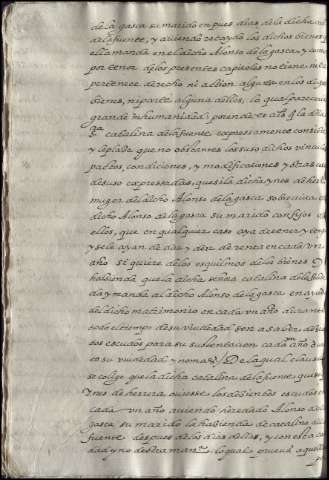 de la gasca su marido en pues dias de la dicha
de la fuente, y auiendo recaydo los dichos bienes y
ella manda en el dicho Alonso de la gasca, y como
por tenor de los presentes capitulos no tiene, ni le
pertenece derecho ni action alguna en los dichos
bienes, ni parte alguna dellos, lo qual parece
grande inhumanidad; por ende es assi q̃ la dicha
Sa. catalina de la fuente expressamente consiente
y le plaze que no obstante los suso dichos vinculos
pactos, condiciones, y modificationes y otras cosas
de suso expressadas, que si la dicha ynes de herrera
muger del dicho Alonso de la gasca sobreuiuiere
dicho Alonso de la gasca su marido con hijos
ellos, que en qualquier caso aya de tener y tenga
y se le ayan de dar y den de renta en cada un
año si quiere de los esquilmos de los bienes y
hazienda que la dicha señora catalina de la fuente
da y manda al dicho Alonso de la gasca en ayuda
al dicho matrimonio en cada un año durante
todo el tiempo de su viudedad son a saber
sos escudos para su sustentacion cadaun año
en su viudedad y no mas / De la qual clausula
se colige que la dicha catalina de la fuente, quiso
ynes de herrera ouiesse los dozientos escudos
cada un año auiendo heredado Alonso de la
gasca su marido la hazienda de catalina de la
fuente despues de los dias della, y con esta
dad y no de otra manera. lo qual se prueua